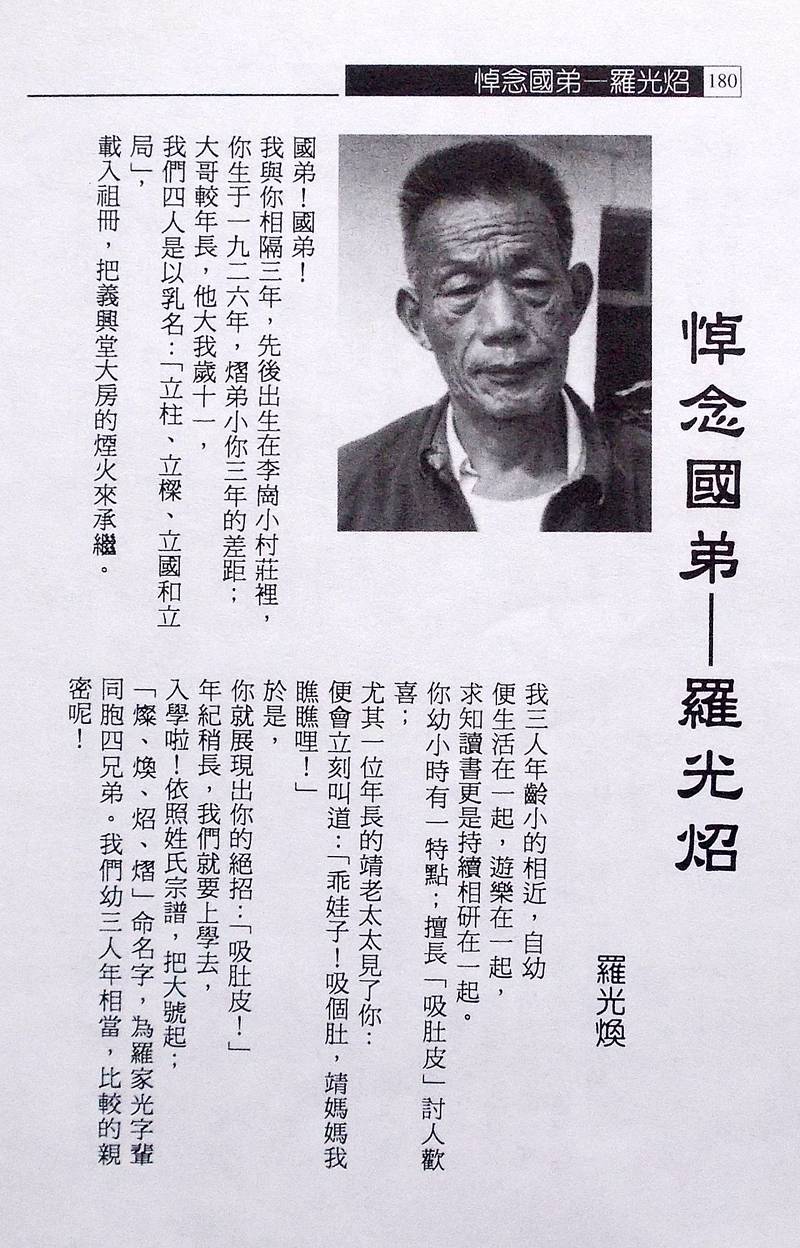 悼念國弟—羅光炤 180
悼念國弟—羅光炤
羅光煥
國弟！國弟！
我與你相隔三年，先後出生在李崗小村莊裡，
你生于一九二六年，熠弟小你三年的差距；
大哥較年長，他大我歲十一，
我們四人是以乳名：「立柱、立樑、立國和立
局」，
載入祖冊，把義興堂大房的煙火來承繼。
我三人年齡小的相近，自幼
便生活在一起，遊樂在一起，
求知讀書更是持續相研在一起。
你幼小時有一特點；擅長「吸肚皮」討人歡
喜；
尤其一位年長的靖老太太見了你：
便會立刻叫道：「乖娃子！吸個肚，靖媽媽我
瞧瞧哩！」
於是，
你就展現出你的絕招：「吸肚皮！」
年紀稍長，我們就要上學去，
入學啦！依照姓氏宗譜，把大號起；
「燦、煥、炤、熠」命名字，為羅家光字輩
同胞四兄弟。我們幼三人年相當，比較的親
密呢！